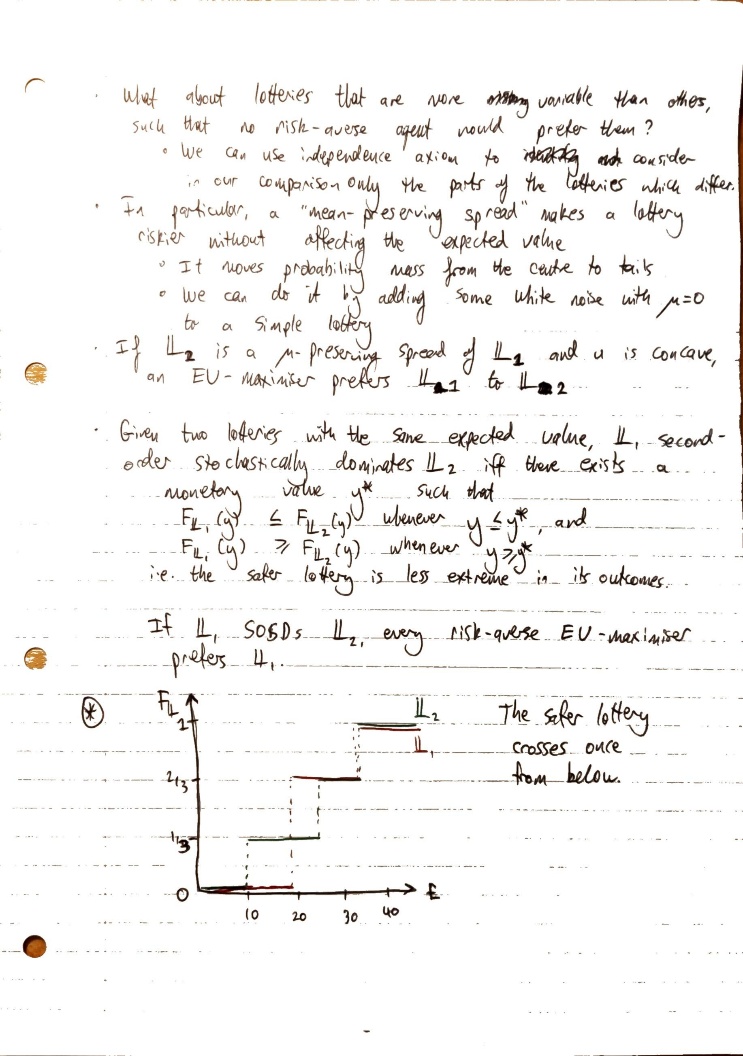 · What about lotteries that are more variable than others,
such that no risk-averse agent would prefer them?
∘ We can use independence axiom to consider
in our comparison only the parts of the lotteries which differ.
· In particular, a "mean-preserving spread" makes a lottery
riskier without affecting the expected value
∘ It moves probability mass from the centre to tails
∘ We can do it by adding some white noise with μ=0
to a simple lottery
· If 𝕃₂ is a μ-preserving spread of 𝕃₁ and u is concave,
an EU-maximiser prefers 𝕃1 to 𝕃2
· Given two lotteries with the same expected value, 𝕃₁ second-
order stochastically dominates 𝕃₂ iff there exists a
monetary value y* such that
F𝕃₁(y) ≤ F𝕃₂(y) whenever y ≤ y*, and
F𝕃₁(y) ≥ F𝕃₂(y) whenever y ≥ y*
i.e. the safer lottery is less extreme in its outcomes.
If 𝕃₁ SOSDs 𝕃₂, every risk-averse EU-maximiser
prefers 𝕃₁.
⊛ F𝕃 𝕃₂ The safer lottery
1 𝕃₁ crosses once
2/3 from below.
1/3
0 £
10 20 30 40